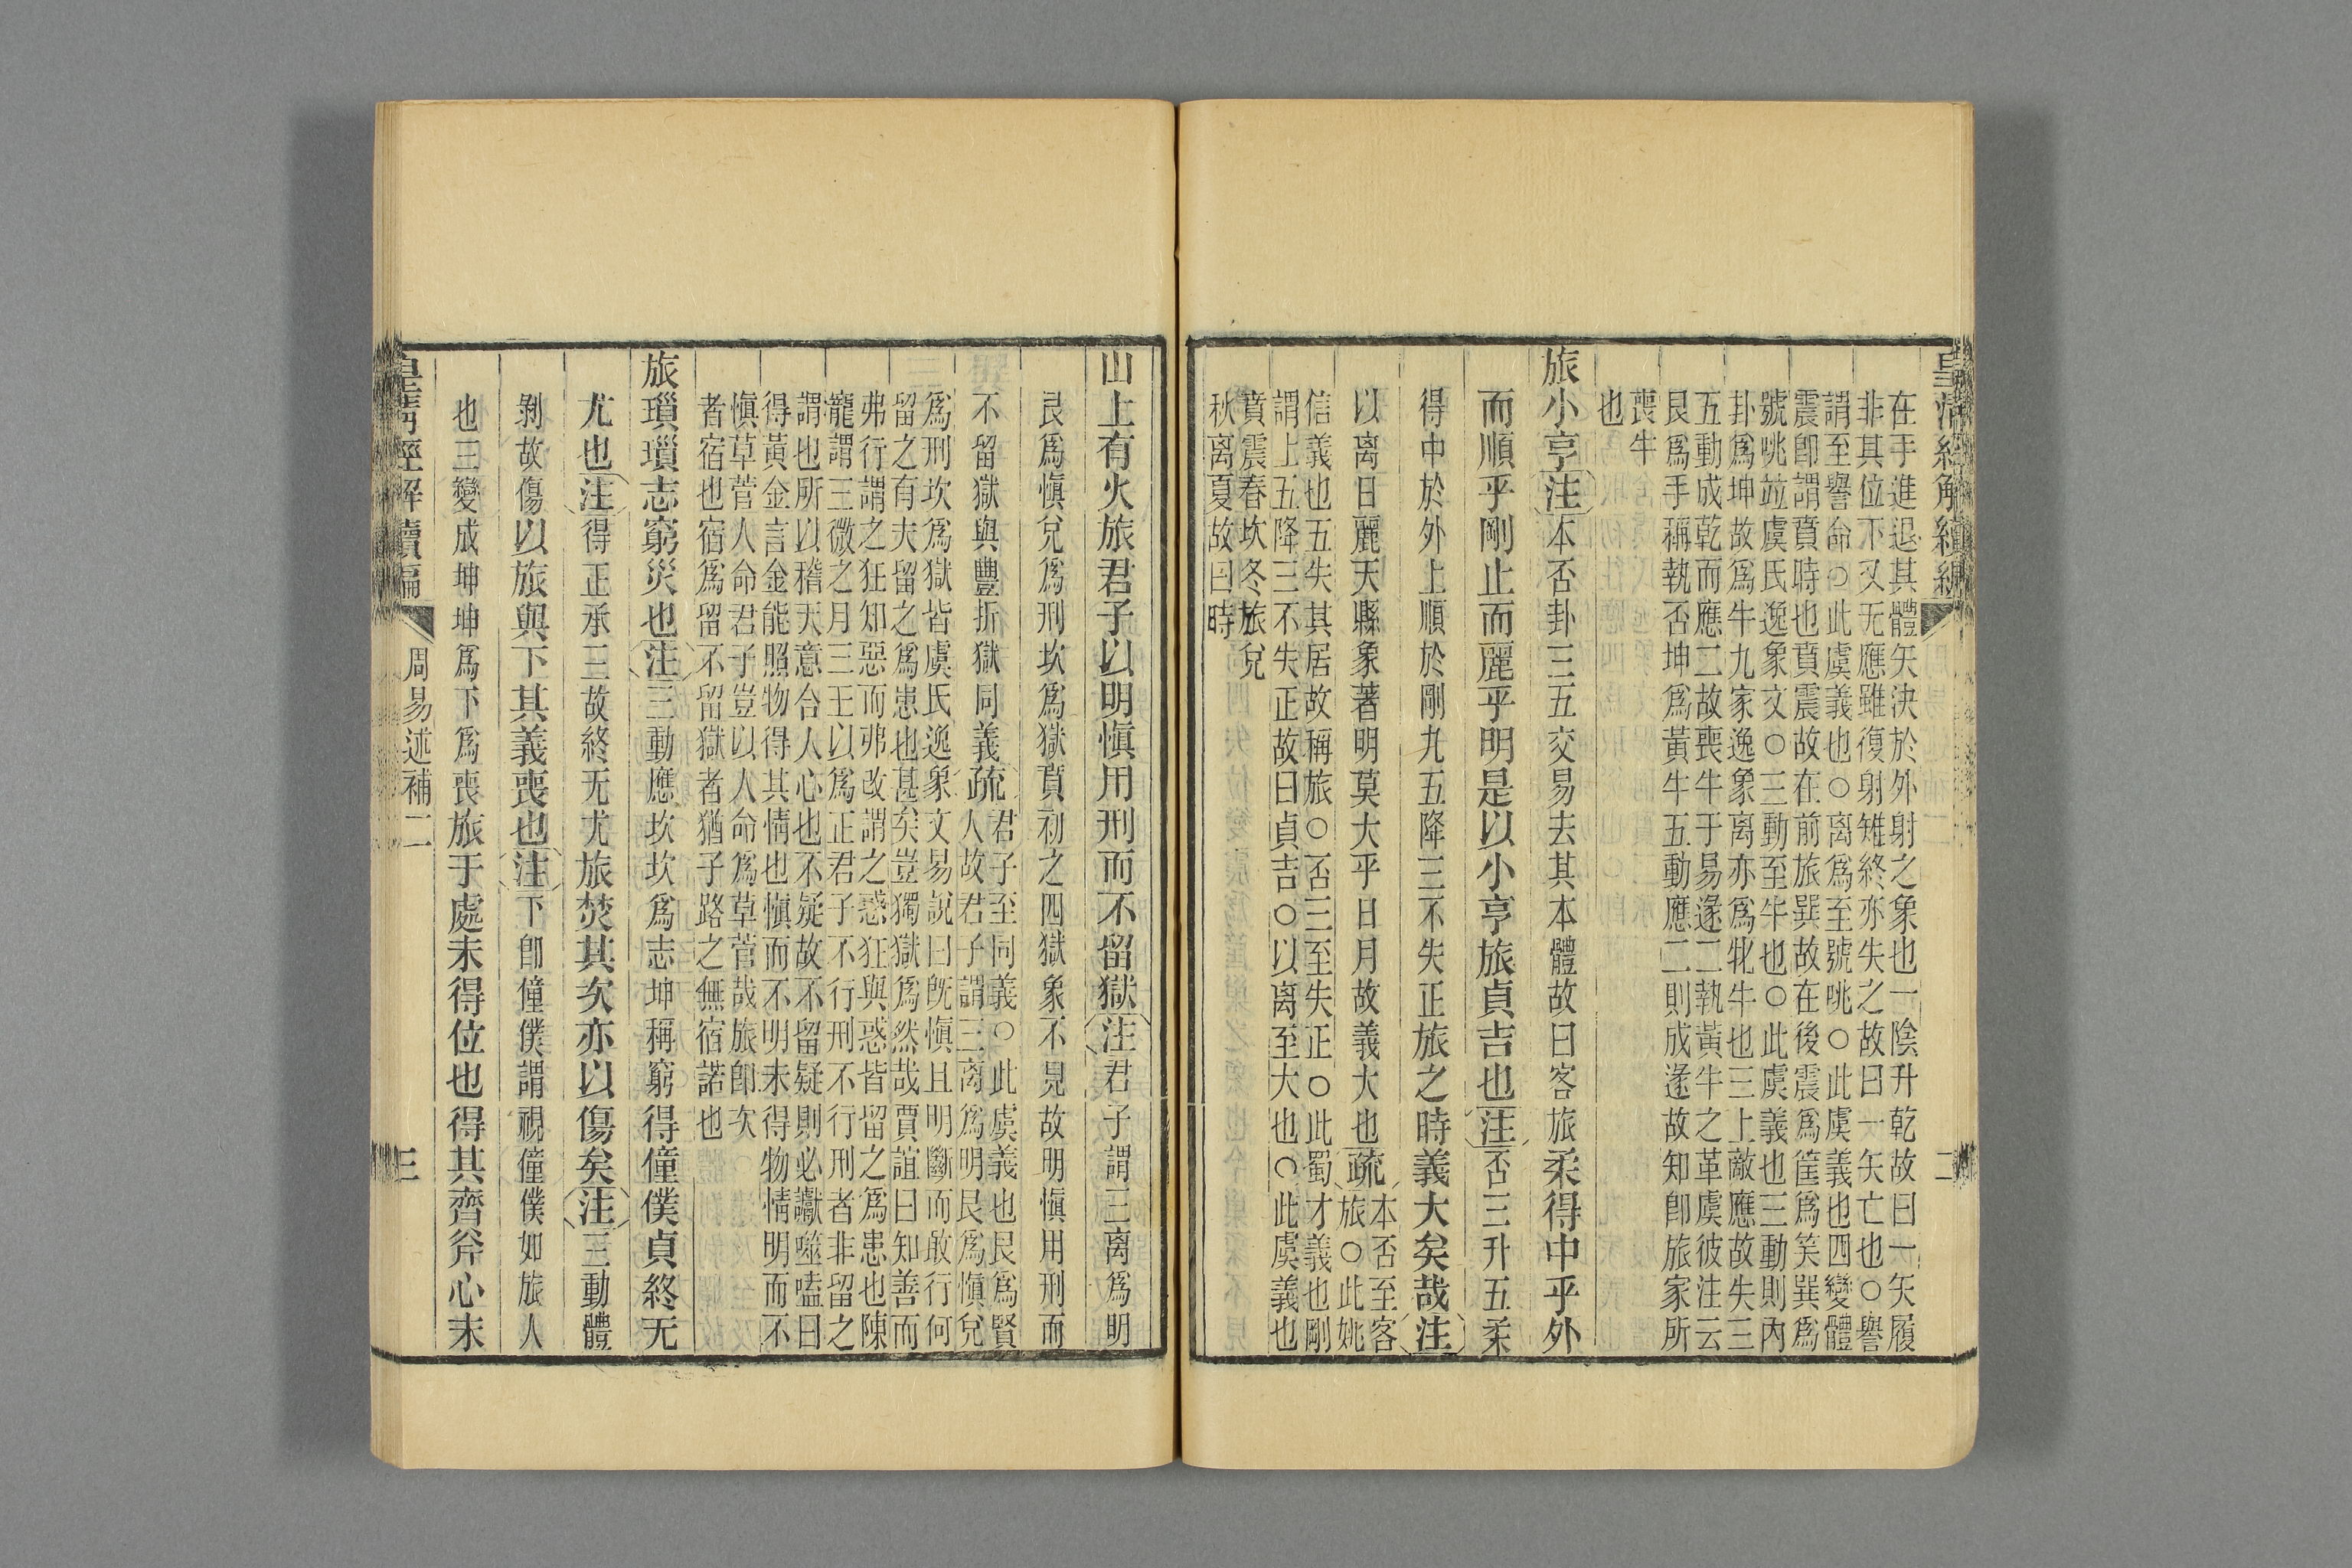 皇清經解續編
二
在手進退其體矢決於外射之象也一陰升乾故曰一矢履
非其位下又无應雖復射雉終亦失之故曰一矢亡也○譽
謂至譽命○此虞義也○離爲至號咷○此虞義也四變體
震卽謂賁時也賁震故在前旅巽故在後震爲筐爲笑巽爲
號咷竝虞氏逸象文○三動至牛也○此虞義也三動則內
卦爲坤故爲牛九家逸象离亦爲牝牛也三上敵應故失三
五動成乾而應二故喪牛于易遂二執黃牛之革虞彼注云
艮爲手稱執否坤爲黃牛五動應二則成遂故知卽旅家所
喪牛
也
旅小亨注本否卦三五交易去其本體故曰客旅柔得中乎外
而順乎剛止而麗乎明是以小亨旅貞吉也注否三升五柔
得中於外上順於剛九五降三不失正旅之時義大矣哉注
以离日麗天縣象著明莫大乎日月故義大也疏本否至客
旅○此姚
信義也五失其居故稱旅○否三至失正○此蜀才義也剛
謂上五降三不失正故曰貞吉○以离至大也○此虞義也
賁震春坎冬旅兌
秋离夏故曰時
山上有火旅君子以明慎用刑而不留獄注君子謂三离爲明
艮爲慎兌爲刑坎爲獄賁初之四獄象不見故明慎用刑而
不留獄與豐折獄同義疏君子至同義○此虞義也艮爲賢
人故君子謂三离爲明艮爲慎兌
爲刑坎爲獄皆虞氏逸象文易說曰旣慎且明斷而敢行何
留之有夫留之爲患也甚矣豈獨獄爲然哉賈誼曰知善而
弗行謂之狂知惡而弗改謂之惑狂與惑皆留之爲患也陳
寵謂三微之月三王以爲正君子不行刑不行刑者非留之
謂也所以稽天意合人心也不疑故不留疑則必讞噬嗑曰
得黃金言金能照物得其情也慎而不明未得物情明而不
慎草菅人命君子豈以人命爲草菅哉旅卽次
者宿也宿爲留不留獄者猶子路之無宿諾也
旅瑣瑣志窮災也注三動應坎坎爲志坤稱窮得僮僕貞終无
尤也注得正承三故終无尤旅焚其次亦以傷矣注三動體
剝故傷以旅與下其義喪也注下卽僮僕謂視僮僕如旅人
也三變成坤坤爲下爲喪旅于處未得位也得其齊斧心未
皇清經解續編
周易述補二
三